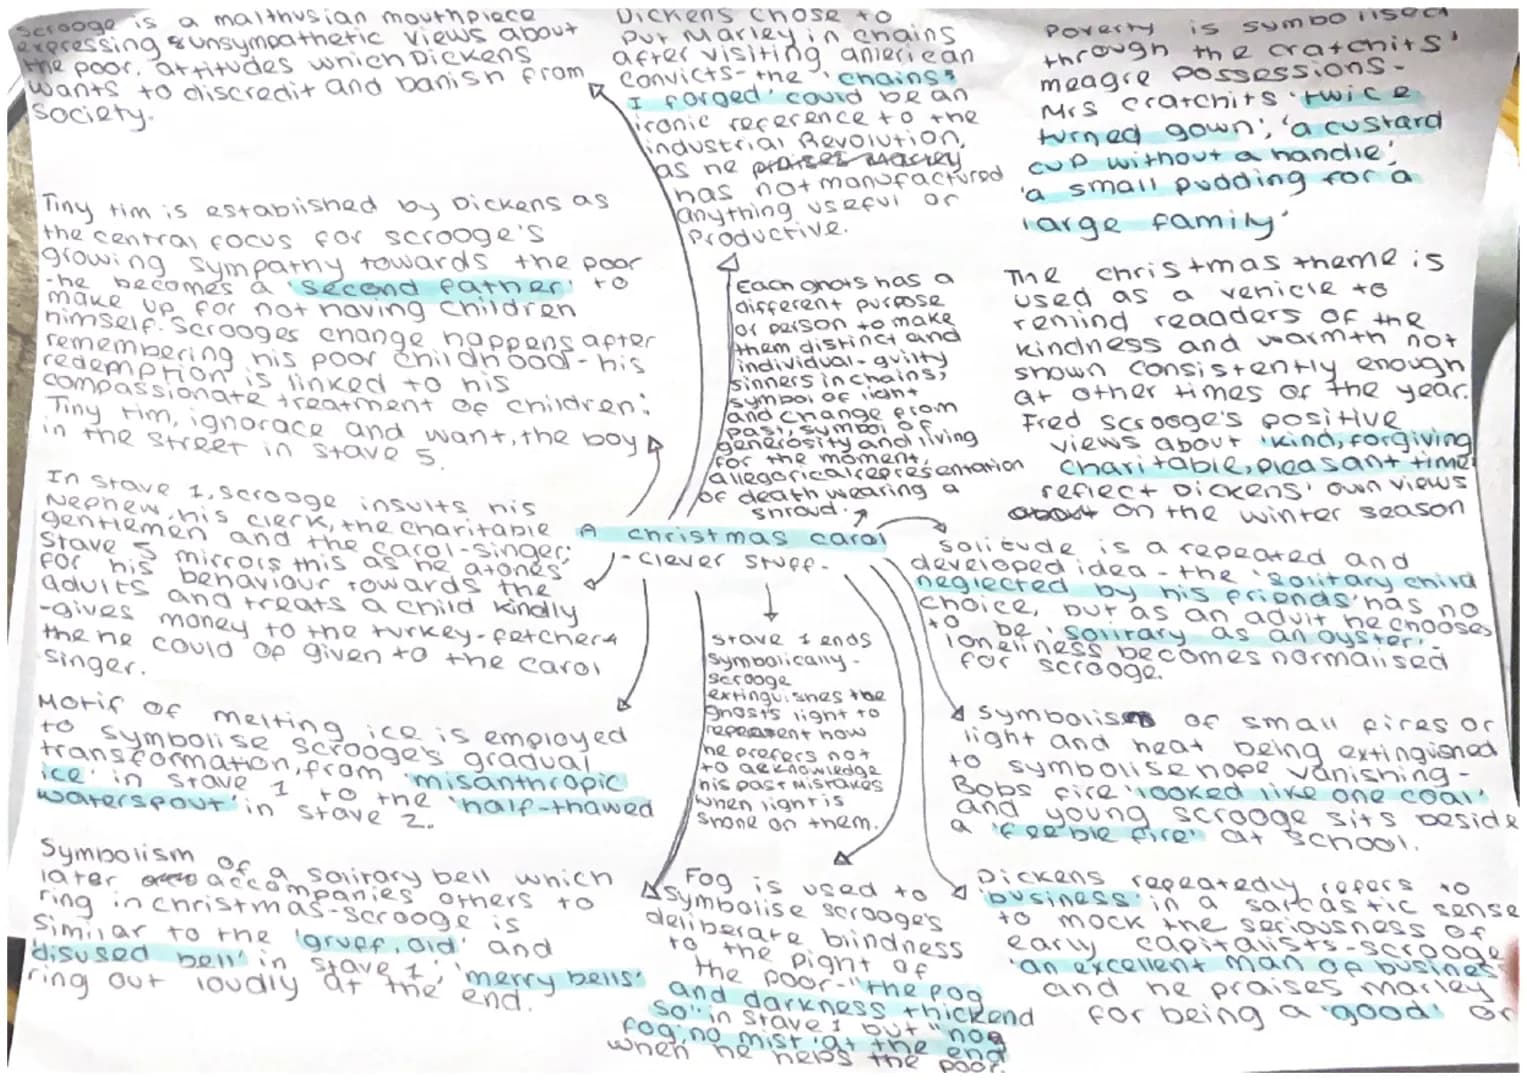 Scrooge is a malthusian mouthpiece
expressing & unsympathetic views about
the poor, attitudes which Dickens
wants to discredit and banish from
society.
Tiny tim is established by Dickens as
the central focus for scrooge's
growing sympathy towards the poor
-he becomes a 'second father' to
make up for not having children
himself. Scrooges change happens after
remembering his poor childhood - his
redemption is linked to his
compassionate treatment of children:
Tiny tim, ignorace and want, the boy
in the street in stave 5.
In stave 1, scrooge insults his
Nephew, his clerk, the charitable
gentlemen and the carol-singer:
Stave 5 mirrors this as he atones
for his behaviour towards the
adults and treats a child kindly
-gives money to the turkey-fetcher
the he could of given to the carol
singer.
Motif of melting ice is employed
to symbolise scrooge's gradual
transformation, from 'misanthropic
ice' in stave 1 to the 'half-thawed
waterspout' in stave 2.
Symbolism of a solitary bell which
later accompanies others to
ring in christmas - scrooge is
similar to the 'gruff, old' and
disused bell' in stave 1, 'merry bells'
ring out loudly at the end.
Dickens chose to
put Marley in chains
after visiting american
convicts - the 'chains
I forged' could be an
ironic reference to the
industrial Revolution,
as he praises Marley
has not manufactured
anything useful or
productive.
Each ghots has a
different purpose
or person to make
them distinct and
individual - guilty
sinners in chains,
symbol of light
and change from
past, symbol of
generosity and living
for the moment,
allegorical representation
of death wearing a
shroud.
A christmas carol
- clever stuff -
stave 1 ends
symbolically -
scrooge
extinguishes the
ghosts light to
represent how
he prefers not
to acknowledge
his past mistakes
when light is
shone on them.
Fog is used to
symbolise scrooge's
deliberate blindness
to the plight of
the poor - "the fog
and darkness thickend
so" in stave 1 but "nog
fog, no mist' at the end
when he helps the poor.
Poverty is symbolised
through the cratchits'
meagre possessions -
Mrs cratchits 'twice
turned gown', 'a custard
cup without a handle',
'a small pudding for a
large family'
The christmas theme is
used as a vehicle to
remind readders of the
kindness and warmth not
shown consistently enough
at other times of the year.
Fred scrooge's positive
views about 'kind, forgiving
charitable, pleasant time'
reflect Dickens' own views
about on the winter season
Solitude is a repeated and
developed idea - the 'solitary child
neglected by his friends' has no
choice, but as an adult he chooses
to be 'solitary as an oyster'.
loneliness becomes normalised
for scrooge.
Symbolism of small fires or
light and heat being extinguished
to symbolise hope vanishing -
Bobs fire 'looked like one coal'
and young scrooge sits beside
a 'feeble fire' at school.
Dickens repeatedly refers to
'business' in a sarcastic sense
to mock the seriousness of
early capitalists - scrooge
'an excellent man of busines
and he praises marley
for being a 'good' or